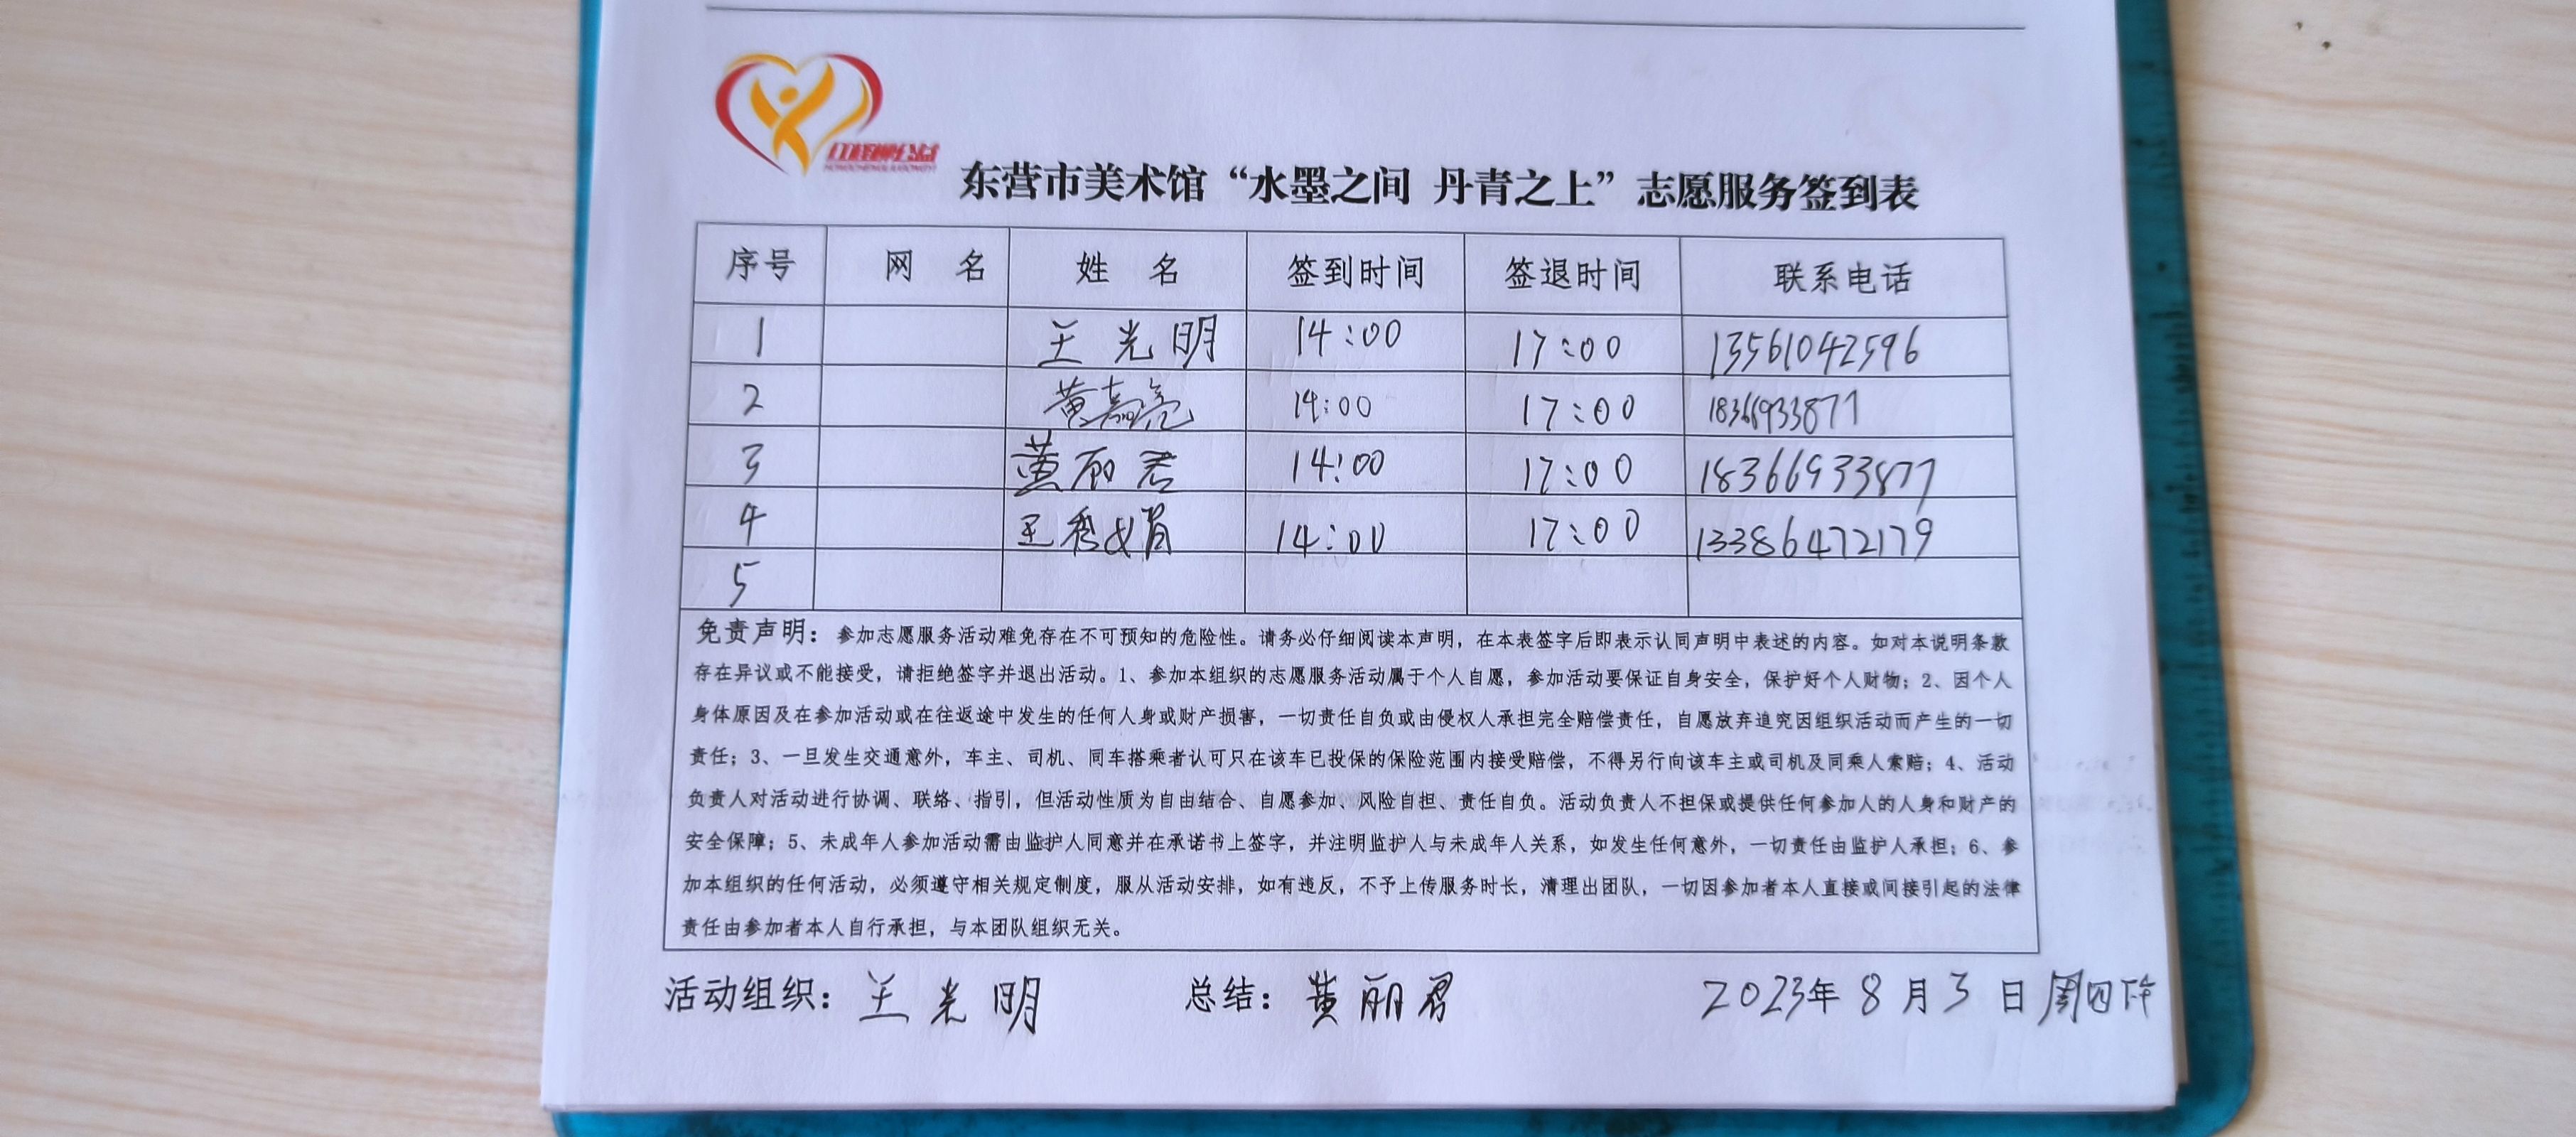 东营市美术馆“水墨之间 丹青之上”志愿服务签到表
序号 网 名 姓 名 签到时间 签退时间 联系电话
1 王光明 14:00 17:00 13561042596
2 黄嘉亮 14:00 17:00 18366933877
3 黄丽君 14:00 17:00 18366933877
4 王秀娟 14:00 17:00 13386472179
5
免责声明：参加志愿服务活动难免存在不可预知的危险性。请务必仔细阅读本声明，在本表签字后即表示认同声明中表述的内容。如对本说明条款
存在异议或不能接受，请拒绝签字并退出活动。1、参加本组织的志愿服务活动属于个人自愿，参加活动要保证自身安全，保护好个人财物；2、因个人
身体原因及在参加活动或在往返途中发生的任何人身或财产损害，一切责任自负或由侵权人承担完全赔偿责任，自愿放弃追究因组织活动而产生的一切
责任；3、一旦发生交通意外，车主、司机、同车搭乘者认可只在该车已投保的保险范围内接受赔偿，不得另行向该车主或司机及同乘人索赔；4、活动
负责人对活动进行协调、联络、指引，但活动性质为自由结合、自愿参加、风险自担、责任自负。活动负责人不担保或提供任何参加人的人身和财产的
安全保障；5、未成年人参加活动需由监护人同意并在承诺书上签字，并注明监护人与未成年人关系，如发生任何意外，一切责任由监护人承担；6、参
加本组织的任何活动，必须遵守相关规定制度，服从活动安排，如有违反，不予上传服务时长，清理出团队，一切因参加者本人直接或间接引起的法律
责任由参加者本人自行承担，与本团队组织无关。
活动组织：王光明 总结：黄丽君 2023年8月3日周四下午